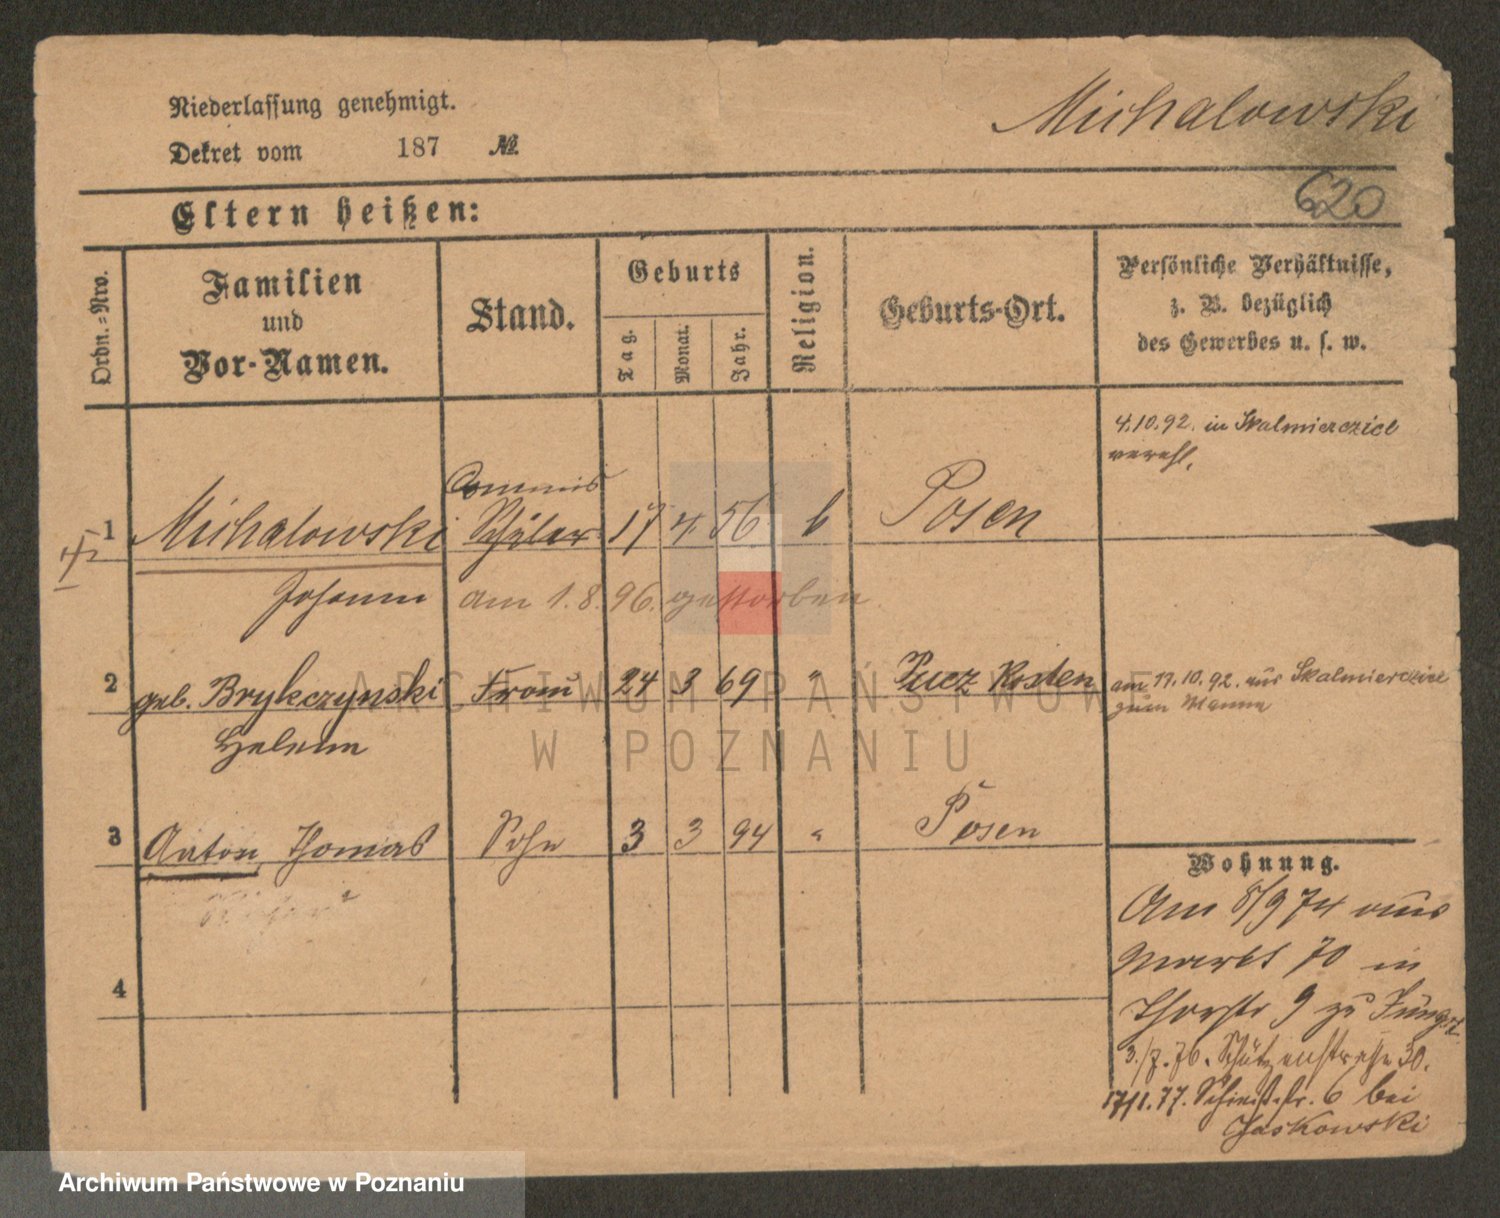 Niederlassung genehmigt.
Dekret vom 187 №
Michalowski
620
Eltern heißen:
Ordn.=Nro.
Familien
und
Vor-Namen.
Stand.
Geburts
Tag.
Monat.
Jahr.
Religion.
Geburts-Ort.
Persönliche Verhältnisse,
z. B. bezüglich
des Gewerbes u. s. w.
4.10.92. in Skalmierczice
verehl.
Commis
1 Michalowski Schüler 17 4 56 k Posen
Johann am 1.8.96. gestorben
2 geb. Brykczynski Frau 24 3 69 " Kosten
Helena
am 17.10.92. aus Skalmierczice
zum Manne
3 Anton, Thomas Sohn 3 3 94 " Posen
4
Wohnung.
Am 8/9 74 aus
Markt 70 in
Thorstr 9 zu
3./7.76. Schützenstraße 30.
17/1.77. 6 bei
Jaskowski
ARCHIWUM PAŃSTWOWE
W POZNANIU
Archiwum Państwowe w Poznaniu